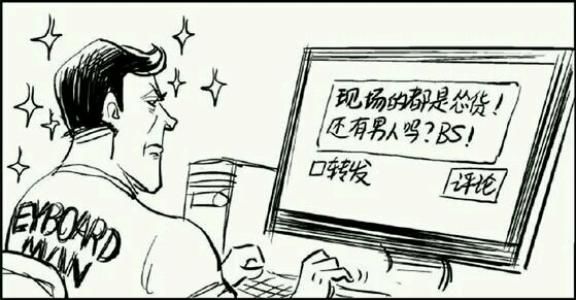 现场的都是怂货!
还有男人吗?BS!
口转发
评论
EYBOARD
MAN